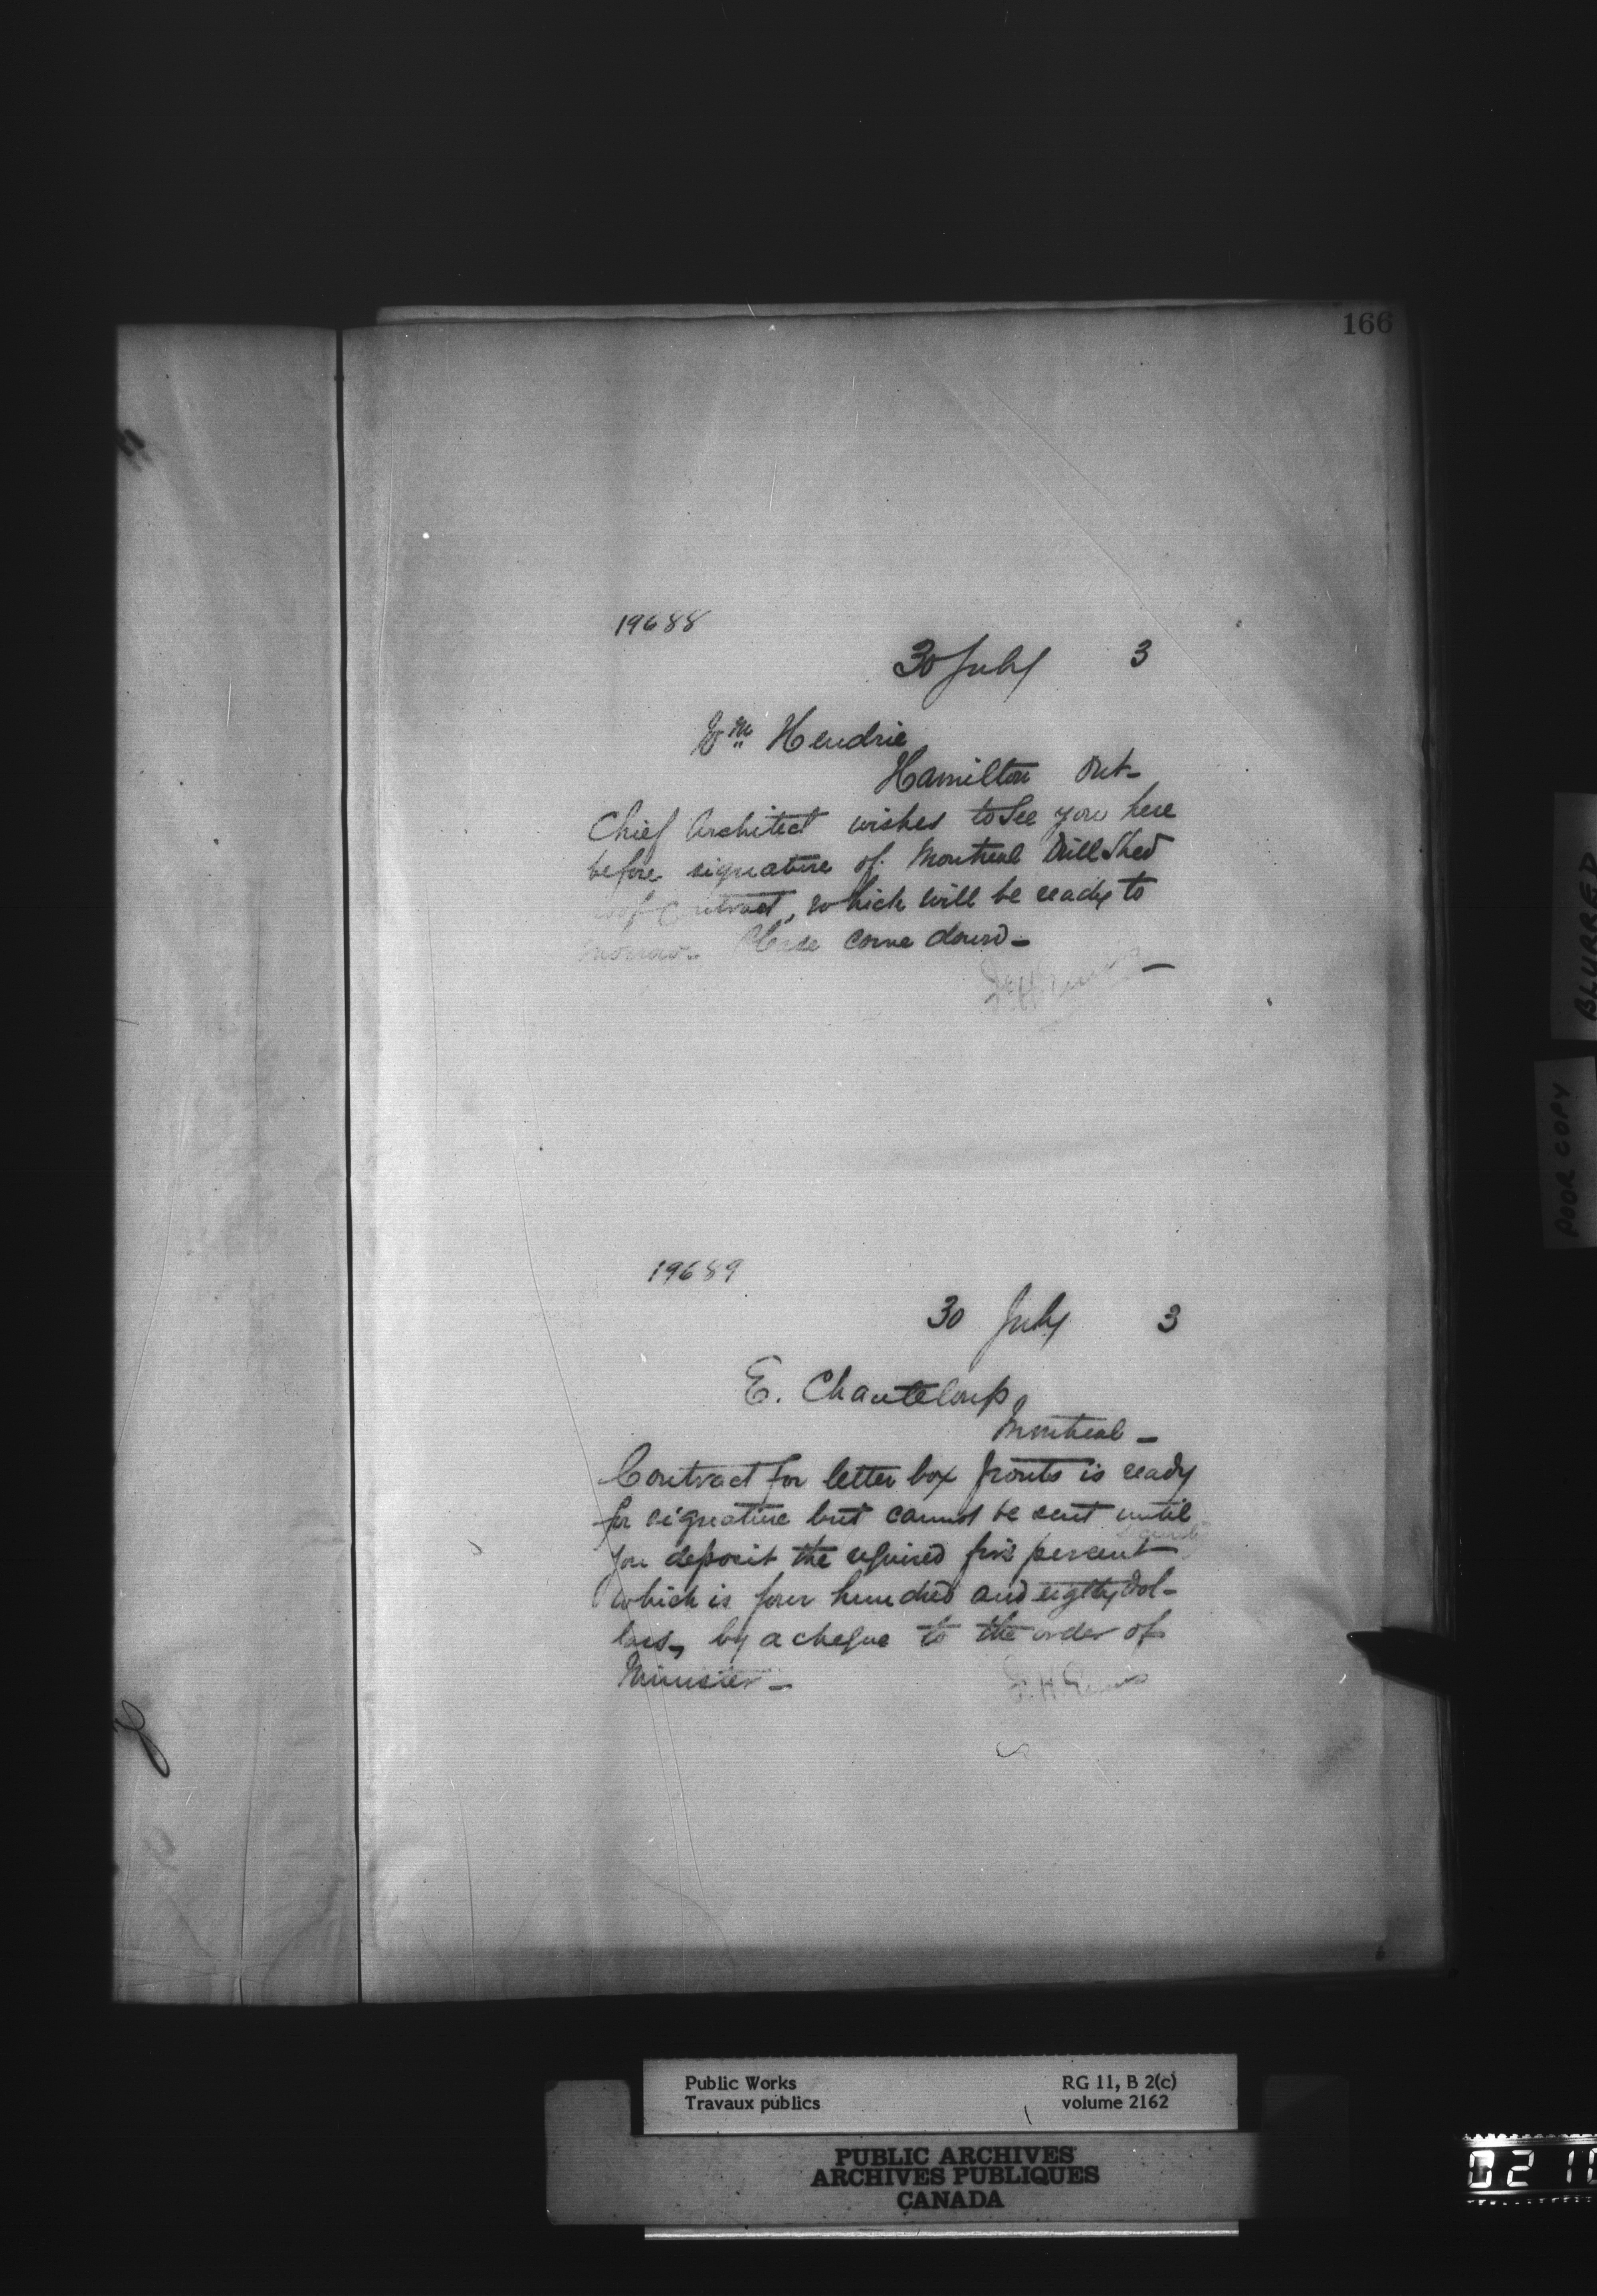 166
19688
30 July 3
Wm Hendrie
Hamilton Ont-
Chief Architect wishes to See you here
before signature of Montreal Drill Shed
roof contract, which will be ready to
morrow.. Please come down-
19689
30 July 3
E. Chanteloup
Montreal-
Contract for letter box fronts is ready
for signature but cannot be sent until
you deposit the required five percent
which is four hundred and eigthy dol-
lars, by a cheque to the order of
Minister-
F. H. Ennis
BLURRED
POOR COPY
Public Works
Travaux publics
RG 11, B 2(c)
volume 2162
PUBLIC ARCHIVES
ARCHIVES PUBLIQUES
CANADA
0210